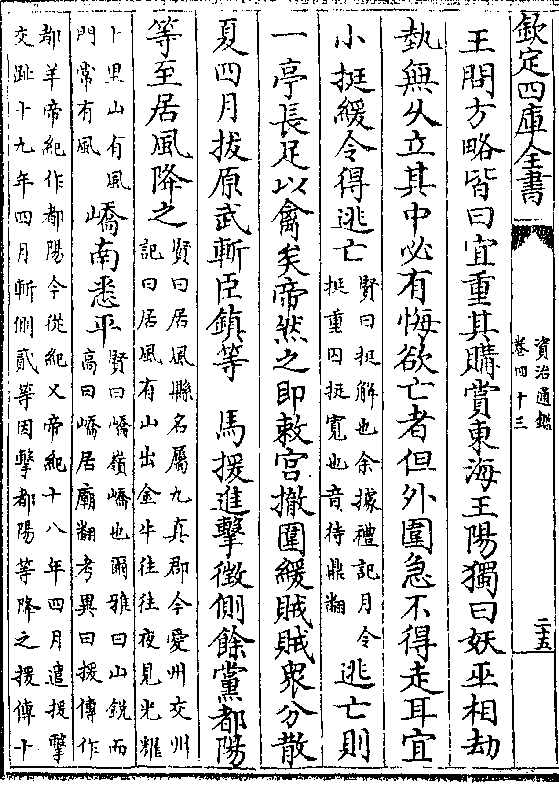 欽定四庫全書
資治通鑑
卷四十三
二十五
王問方略皆曰宜重其購賞東海王陽獨曰妖巫相劫
埶無乆立其中必有悔欲亡者但外圍急不得走耳宜
小挺緩令得逃亡
賢曰挺解也余據禮記月令
挺重囚挺寛也音待鼎翻
逃亡則
一亭長足以禽矣帝然之即敕宫撤圍緩賊賊衆分散
夏四月拔原武斬臣鎮等　馬援進擊徵側餘黨都陽
等至居風降之
賢曰居風縣名屬九真郡今愛州交州
記曰居風有山出金牛往往夜見光耀
卜里山有風
門常有風
嶠南悉平
賢曰嶠嶺嶠也爾雅曰山銳而
高曰嶠居廟翻考異曰援傳作
都羊帝紀作都陽今從紀又帝紀十八年四月遣援擊
交趾十九年四月斬側貳等因擊都陽等降之援傳十